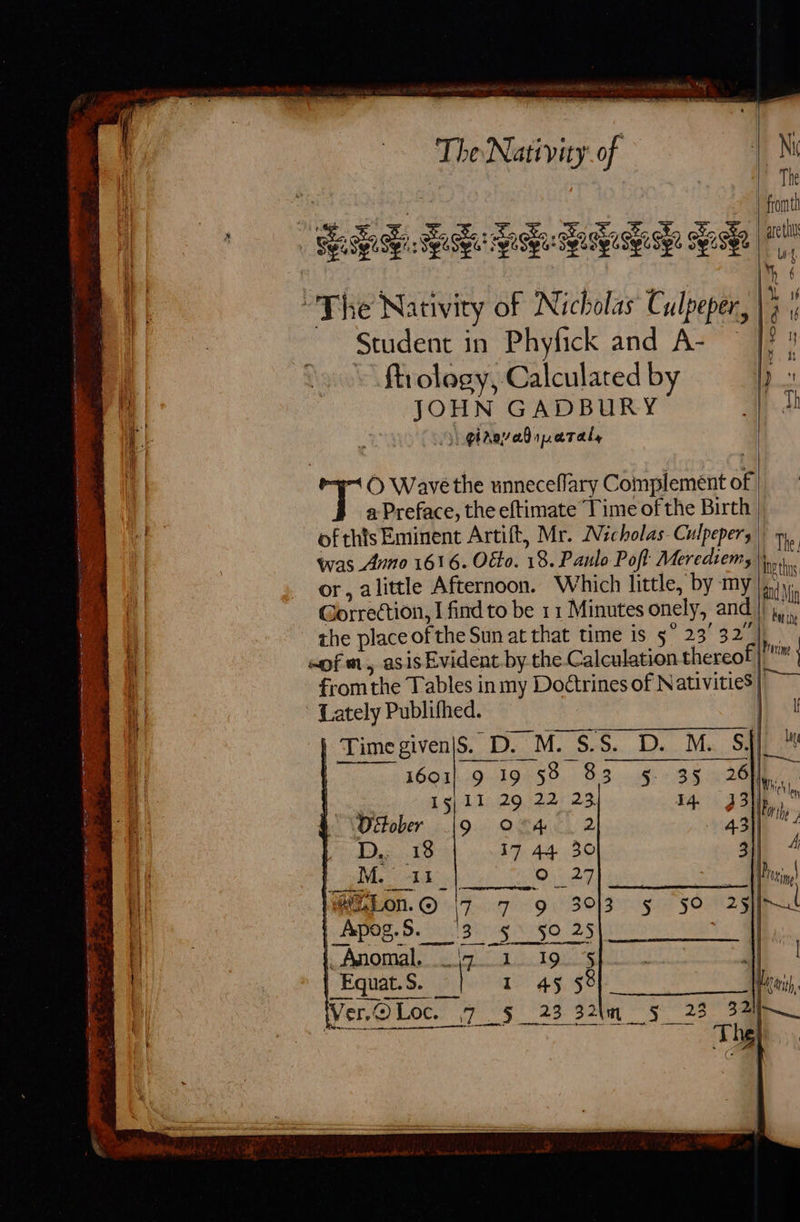 The Nativity of
The Nativity of Nicholas Culpeper,
Student in Phyſick and A-
ſtrology, Calculated by
JOHN GADBURY
TO Wave the unneceſſary Complement of
a Preface, the eſtimate Time of the Birth
of this Eminent Artiſt, Mr. Nicholas Culpeper,
was Anno 1616. Octo. 18. Paulo Poſt Merediem,
or, a little Afternoon. Which little, by my
Correction, I find to be 11 Minutes onely, and
the place of the Sun at that time is 5° 23' 32"
of ♏, as is Evident by the Calculation thereof
from the Tables in my Doctrines of Nativities
Lately Publiſhed.
Time given|S. D. M. S.S. D. M. S.
1601| 9 19 58 83 5 35 26
15| 11 29 22 23| 14 33
October |9 0 4 2| 43
D. 18 | 17 44 30| 3
M. 11 | 0 27|
Lon. ☉ |7 7 9 30|3 5 50 25
Apog. S. |3 5 50 25|
Anomal. |7 1 19 5
Equat. S. | 1 45 58
Ver. ☉ Loc. 7 5 23 32|♏ 5 23 32
The